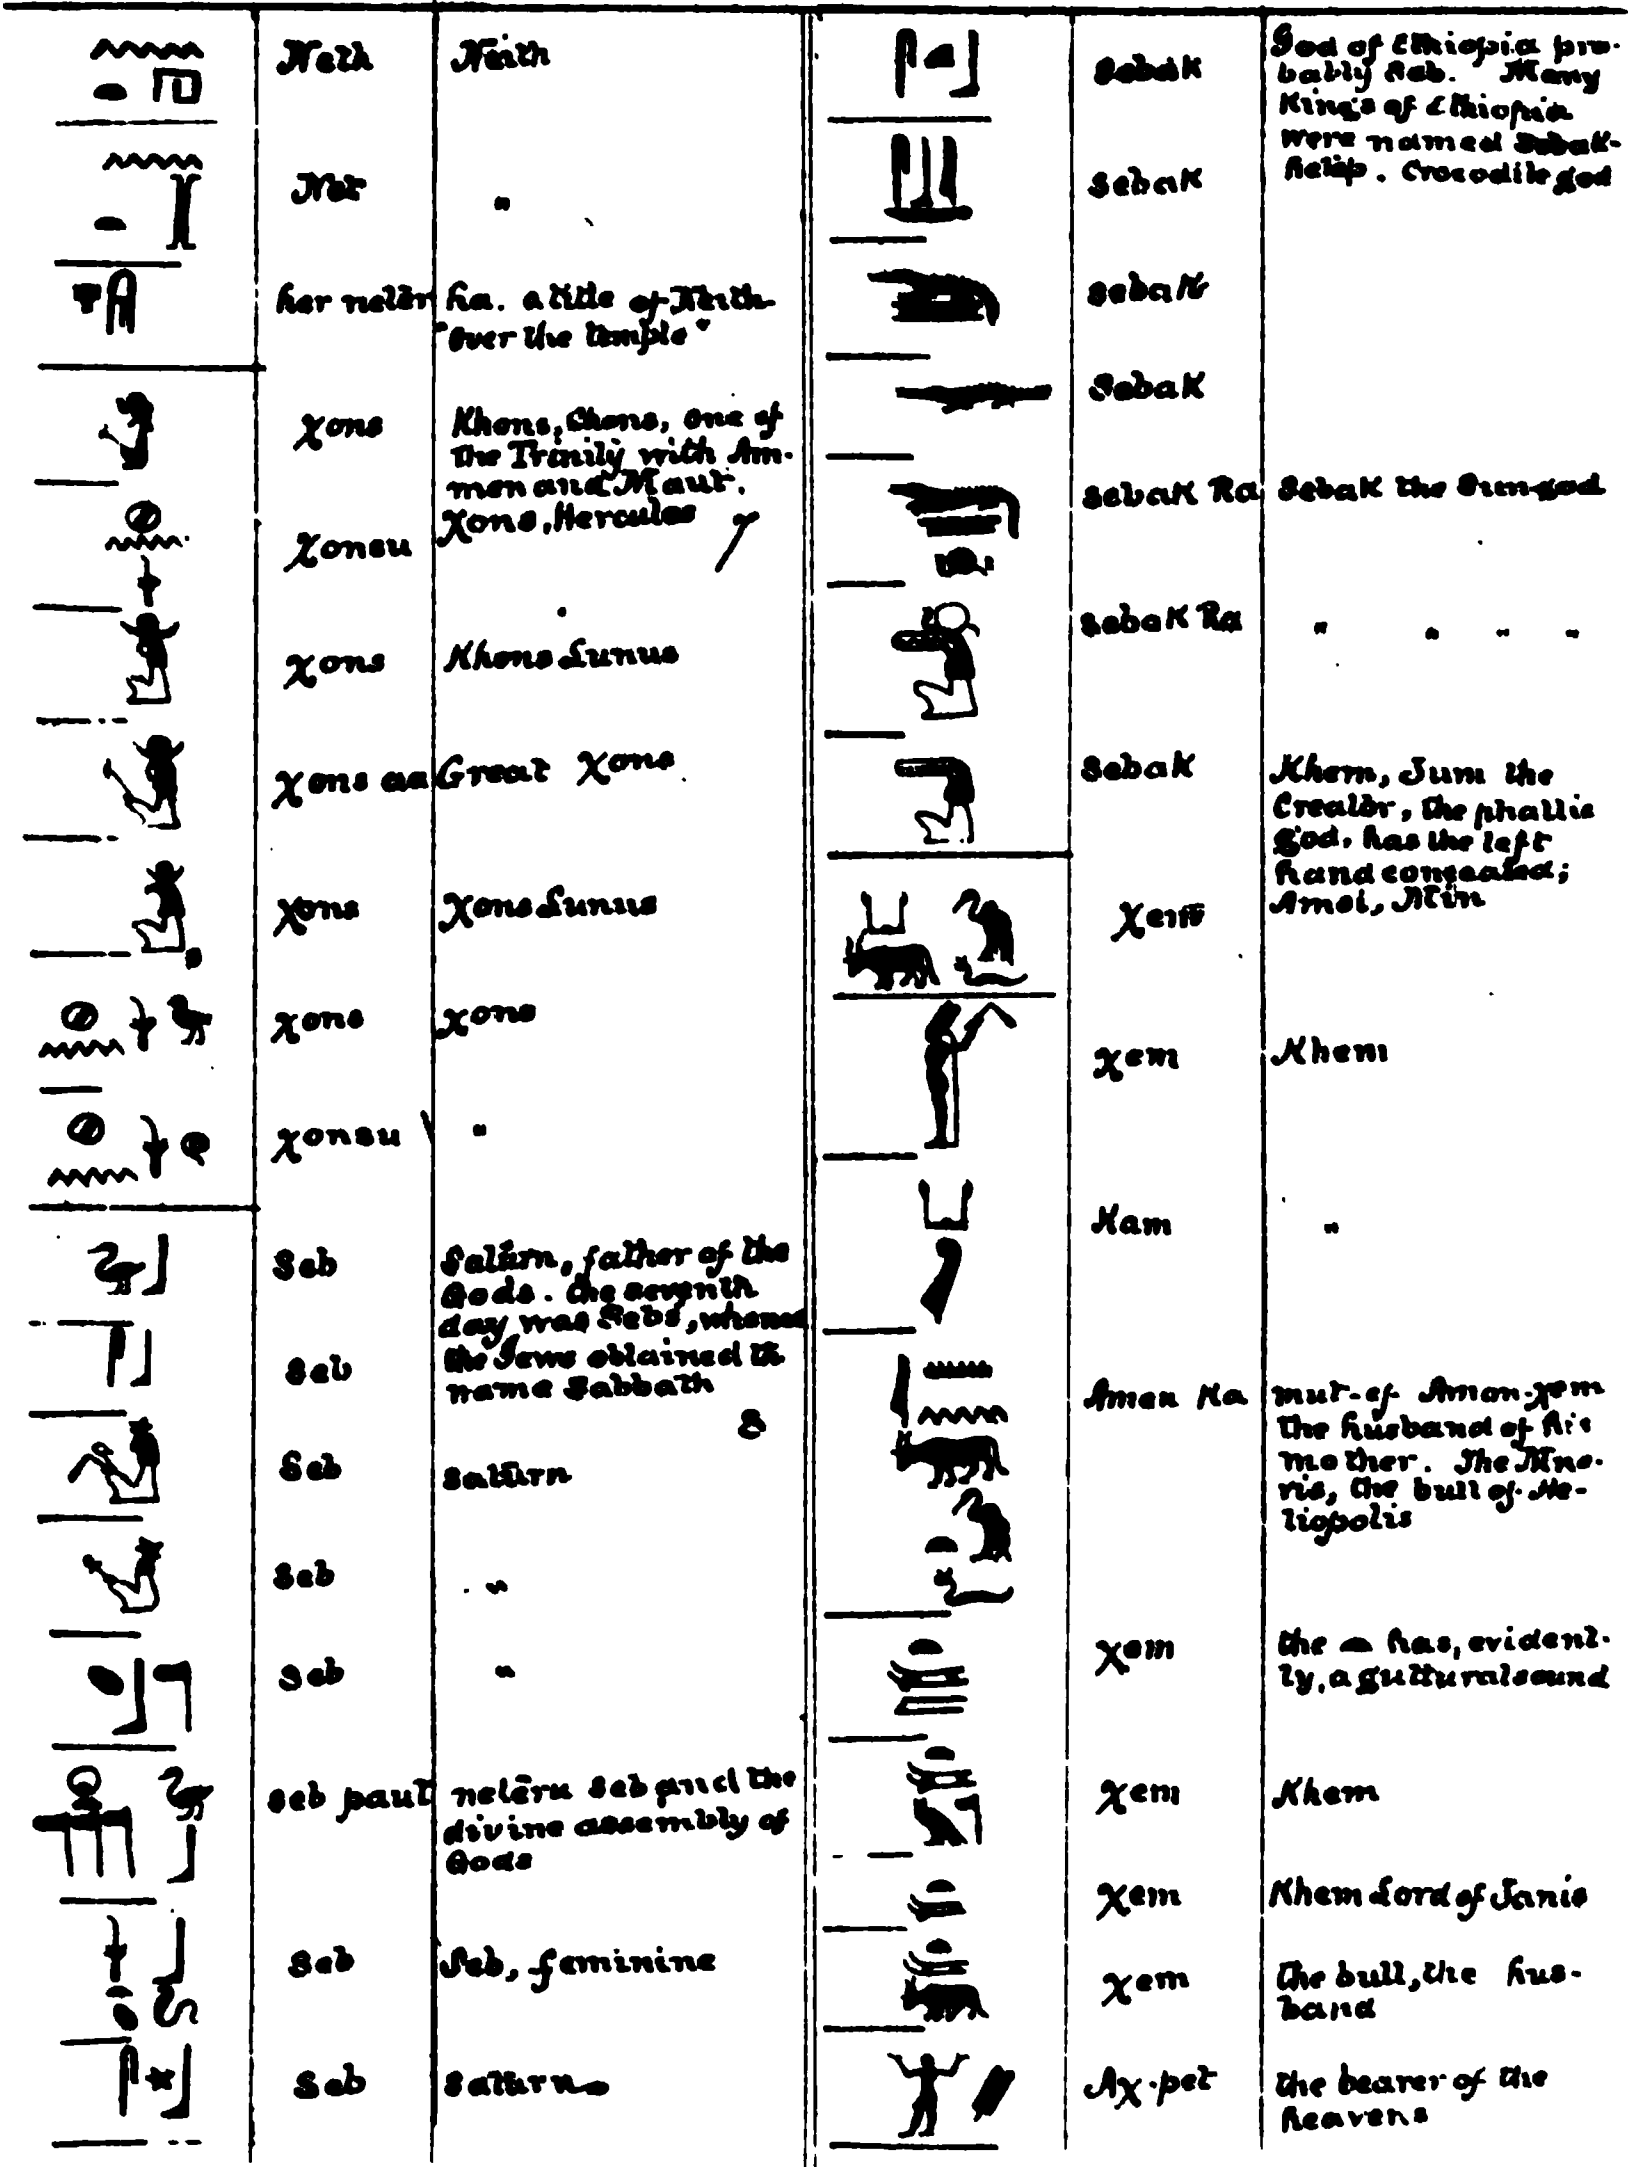 Neth Neith
Net "
her neter ha. a title of Neith
"over the temple"
χons Khons, Chons, one of
the Trinity with Am-
men and Maut.
χons, Hercules
χonsu
χons Khons Lunus
χons aa Great χons
χons χons Lunus
χons χons
χonsu "
Seb Saturn, father of the
Gods. the seventh
day was Seb's, whence
the Jews obtained th
name Sabbath
Seb
Seb Saturn
Seb "
Seb "
Seb paut neteru Seb and the
divine assembly of
Gods
Seb Seb, feminine
Seb Saturn
Sebak God of Ethiopia pro-
bably Seb. Many
Kings of Ethiopia
were named Sebak-
hetep. Crocodile god
Sebak
Sebak
Sebak
Sebak Ra Sebak the Sun-god
Sebak Ra " " " "
Sebak
Khem, Tum the
Creator, the phallic
god, has the left
hand concealed;
Amsi, Min
χem
χem Khem
Kam "
Amen Ka mut-ef Amon-χem
the husband of his
mother. The Mne-
vis, the bull of He-
liopolis
χem the has, evident-
ly, a guttural sound
χem Khem
χem Khem Lord of Tanis
χem the bull, the hus-
band
Aχ-pet the bearer of the
heavens